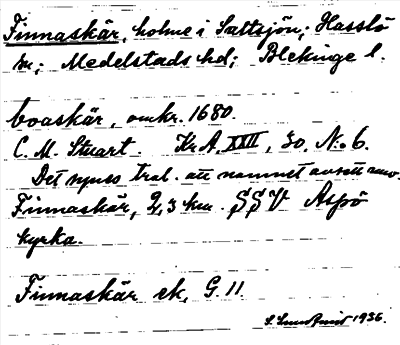 Finnaskär, holme i Saltsjön; Hasslö
sn; Medelstads hd; Blekinge l.
boaskär, omkr. 1680.
C. M. Stuart. Kr.A. XXII, 30, No 6.
Det synes trol. att namnet avsett nuv.
Finnaskär, 2,3 km. SSV Aspö
kyrka.
Finnaskär ek, G. 11.
1936.